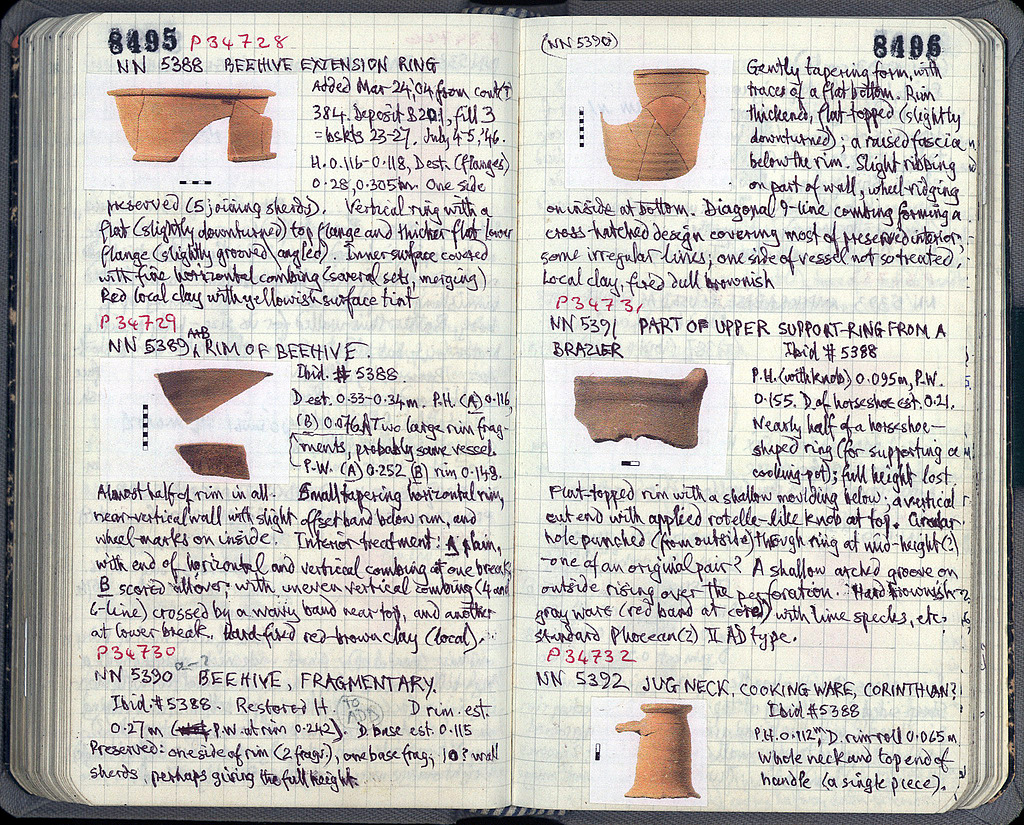 8495 P34728
NN 5388 BEEHIVE EXTENSION RING
Added Mar 24, '04 from cont(?)
384. Deposit S 20:1, fill 3
= bskts 23-27. July 4-5, '46.
H. 0.116-0.118, Dest. (flanges)
0.28, 0.305m. One side
preserved (5 joining sherds). Vertical ring with a
flat (slightly downturned) top flange and thicker flat lower
flange (slightly grooved\angled). Inner surface covered
with fine horizontal combing (several sets, merging)
Red local clay with yellowish surface tint
P34729
NN 5389, A+B RIM OF BEEHIVE.
Ibid. # 5388.
D est. 0.33-0.34m. P.H. (A) 0.116,
(B) 0.076 Two large rim frag-
ments, probably same vessel.
P.W. (A) 0.252 (B) rim 0.148.
Almost half of rim in all. Small tapering horizontal rim,
near-vertical wall with slight offset band below rim, and
wheel marks on inside. Interior treatment: A plain,
with end of horizontal and vertical combing at one break;
B scored all over; with uneven vertical combing (4 and
6-line) crossed by a wavy band near top, and another
at lower break. Hard-fired red-brown clay (local).
P34730
NN 5390 a-? BEEHIVE, FRAGMENTARY.
Ibid. # 5388. Restored H. (TO ADD) D rim. est.
0.27m (P.W. at rim 0.242). D. base est. 0.115
Preserved: one side of rim (2 frags.), one base frag; 10? wall
sherds, perhaps giving the full height.
(NN 5390) 8496
Gently tapering form, with
traces of a flat bottom. Rim
thickened, flat-topped (slightly
downturned); a raised fascia
below the rim. Slight ribbing
on part of wall, wheel-ridging
on inside at bottom. Diagonal 9-line combing forming a
cross-hatched design covering most of preserved interior;
some irregular lines; one side of vessel not so treated.
Local clay, fired dull brownish
P34731
NN 5391 PART OF UPPER SUPPORT-RING FROM A
BRAZIER Ibid # 5388
P.H. (with knob) 0.095m, P.W.
0.155. D of horseshoe est. 0.21.
Nearly half of a horseshoe-
shaped ring (for supporting a
cooking-pot); full height lost.
Flat-topped rim with a shallow moulding below; a vertical
cut end with applied rotelle-like knob at top. Circular
hole punched (from outside) through ring at mid-height(?)
-one of an original pair? A shallow arched groove on
outside rising over the perforation. Hard brownish
gray ware (red band at core) with lime specks, etc.
standard Phocean(?) II AD type.
P34732
NN 5392 JUG NECK, COOKING WARE, CORINTHIAN?
Ibid # 5388
P.H. 0.112m, D. rim-roll 0.065m
Whole neck and top end of
handle (a single piece).